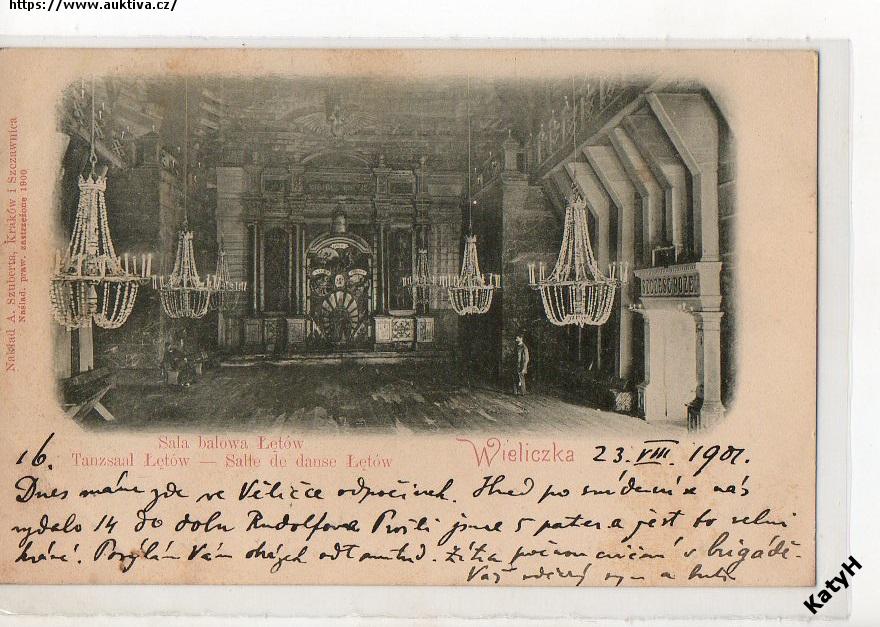 https://www.auktiva.cz/
Nakład A. Szuberta, Kraków i Szczawnica
Naślad. praw. zastrzeżone 1900.
SZCZĘŚĆ BOŻE
Sala balowa Łętów
Tanzsaal Łętów — Salle de danse Łętów
Wieliczka 23. VIII. 1901.
16.
Dnes máme zde ve Věličce odpočinek. Hned po snídani se nás
vydalo 14 do dolu Rudolfova. Prošli jsme 5 pater a jest to velmi
krásné. Posýlám Vám obrázek odtamtud. Zítra počnou cvičení s brigádě.
Váš
syn a
KatyH